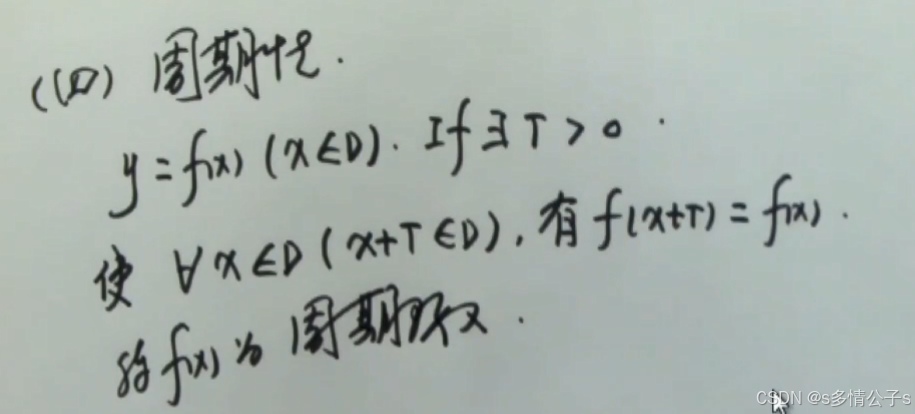 (四) 周期性.
y = f(x) (x∈D). If ∃ T > 0.
使 ∀x∈D (x+T∈D), 有 f(x+T) = f(x).
称 f(x) 为 周期函数.
CSDN @s多情公子s